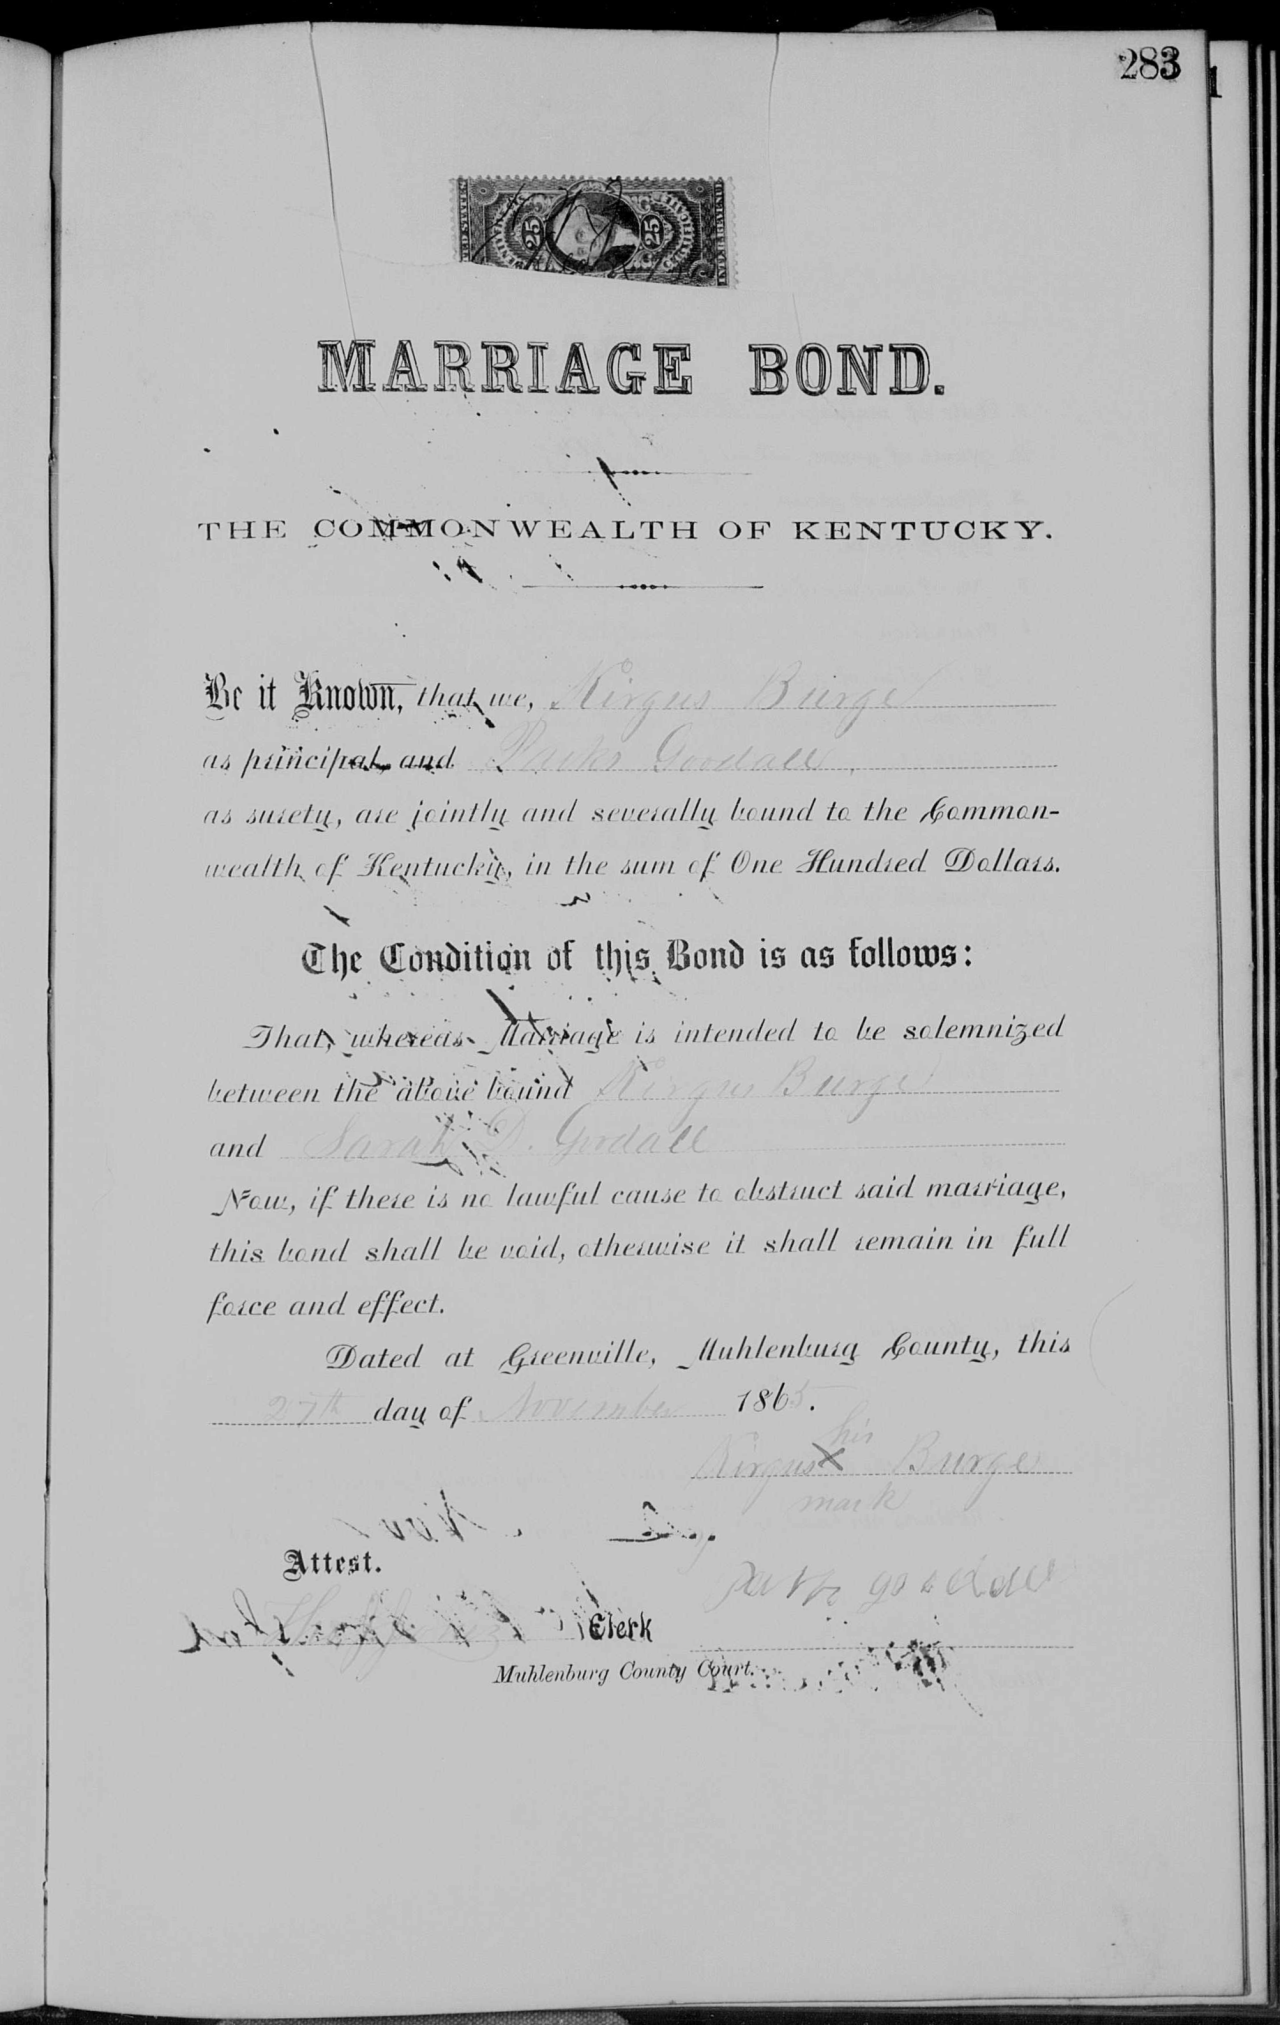 283
25 25
MARRIAGE BOND.
THE COMMONWEALTH OF KENTUCKY.
Be it Known, that we, Kirgus Burge
as principal, and Parks Goodall
as surety, are jointly and severally bound to the Common-
wealth of Kentucky, in the sum of One Hundred Dollars.
The Condition of this Bond is as follows:
That, whereas Marriage is intended to be solemnized
between the above bound Kirgus Burge
and Sarah D. Goodall
Now, if there is no lawful cause to obstruct said marriage,
this bond shall be void, otherwise it shall remain in full
force and effect.
Dated at Greenville, Muhlenburg County, this
27th day of November 1865.
his
Kirgus X Burge
mark
Attest.
Clerk
Muhlenburg County Court.